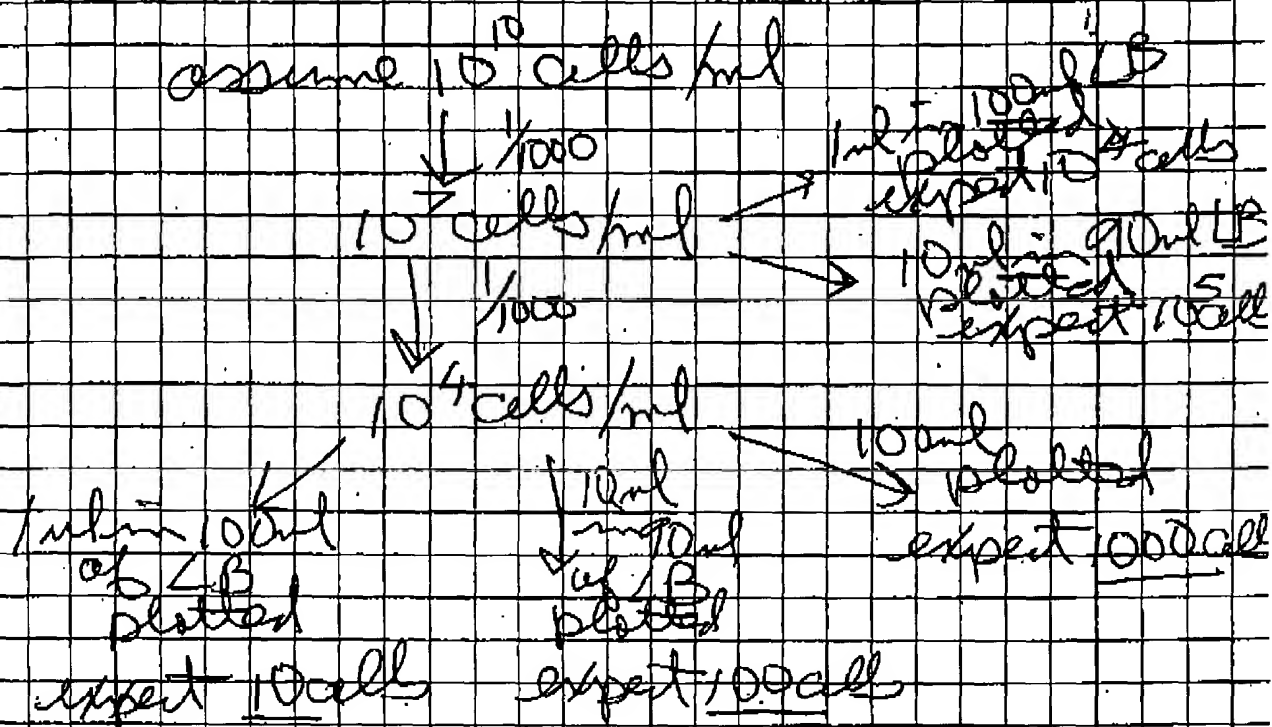 assume 10^10 cells/ml
1/1000
10^7 cells/ml
1ul in 100ul LB
plated
expect 10^4 cells
10ul in 90ul LB
plated
expect 10^5 cell
1/1000
10^4 cells/ml
1ul in 100ul
of LB
plated
expect 10 cells
10ul
in 90ul
of LB
plated
expect 100 cells
100ul
plated
expect 1000 cell